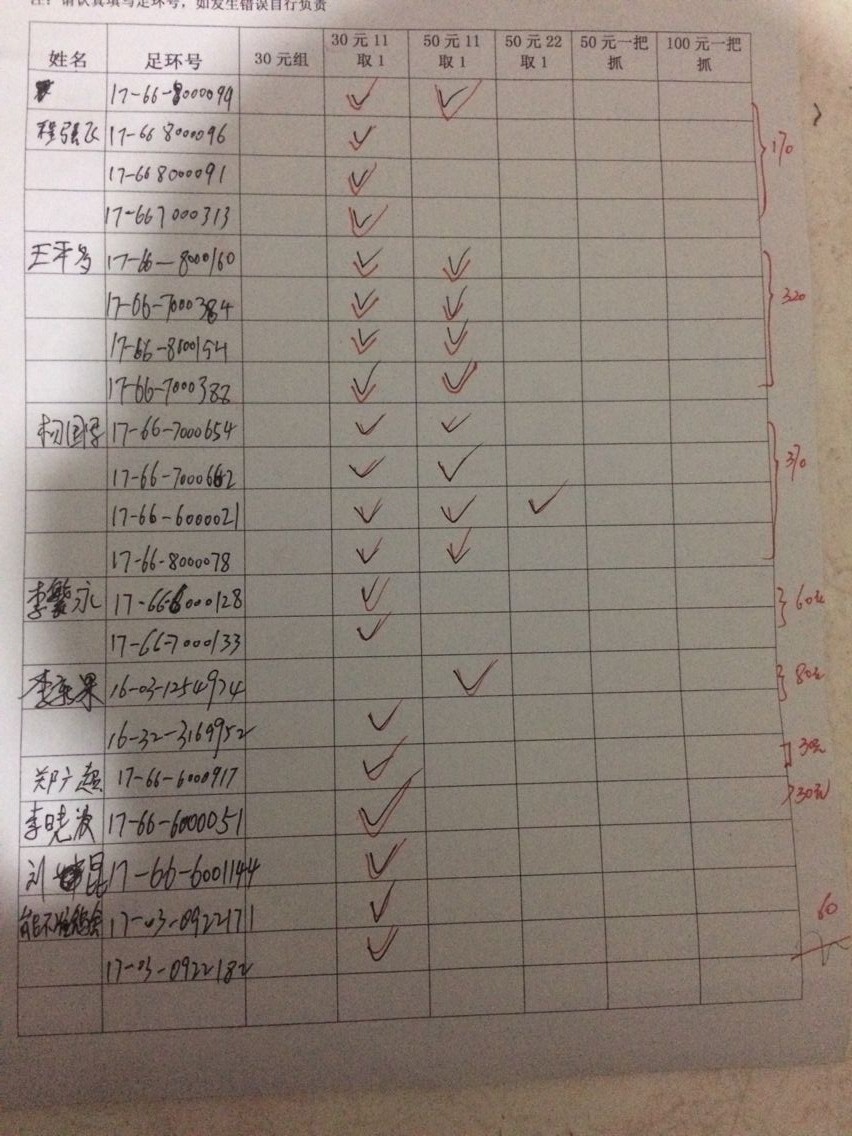 注：请认真填写足环号，如发生错误自行负责
姓名 足环号 30元组 30元11取1 50元11取1 50元22取1 50元一把抓 100元一把抓
17-66-8000099 ✓ ✓
程强飞 17-66 8000096 ✓
17-668000091 ✓
17-667000313 ✓
170
王平为 17-66-8000160 ✓ ✓
17-66-7000384 ✓ ✓
17-66-8000154 ✓ ✓
17-66-7000388 ✓ ✓
320
杨国 17-66-7000654 ✓ ✓
17-66-7000662 ✓ ✓
17-66-6000021 ✓ ✓ ✓
17-66-8000078 ✓ ✓
370
李繁永 17-66-6000128 ✓
17-66-7000133 ✓
60元
李东果 16-03-1254974 ✓
16-32-3169952 ✓
80元
郑广超 17-66-6000917 ✓
30元
李晓波 17-66-6000051 ✓
30元
刘昆 17-66-6001144 ✓
能不 17-03-0922171 ✓
17-03-0922182 ✓
60